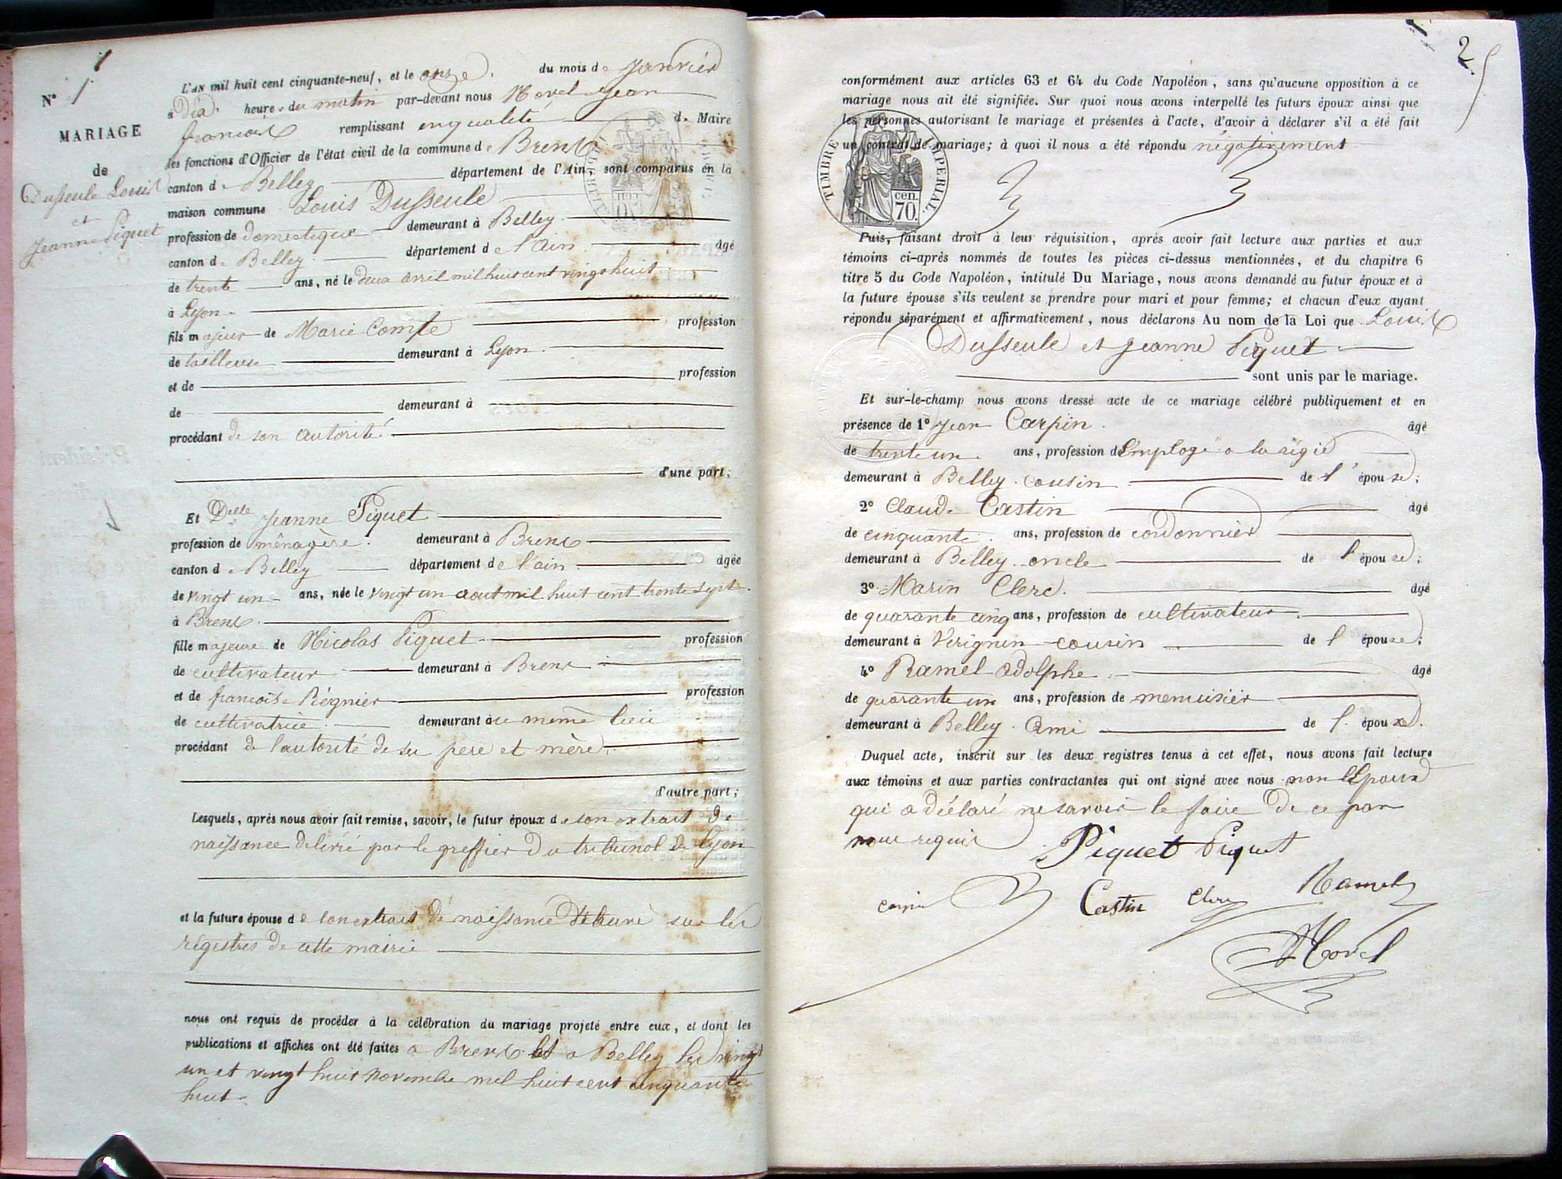 1
N° 1
MARIAGE
de
Dusseule Louis
et
Jeanne Piquet
L'AN mil huit cent cinquante-neuf, et le onze du mois de Janvier
à dix heures du matin par-devant nous Hovel Jean
françois remplissant en qualité de Maire
les fonctions d'Officier de l'état civil de la commune de Brens
canton de Belley département de l'Ain, sont comparus en la
maison commune Louis Dusseule
profession de domestique demeurant à Belley
canton de Belley département de l'ain âgé
de trente ans, né le deux avril mil huit cent vingt huit
à Lyon
fils majeur de Marie Comte profession
de tailleuse demeurant à Lyon
et de profession
de demeurant à
procédant de son autorité
d'une part;
Et Delle Jeanne Piquet
profession de ménagère demeurant à Brens
canton de Belley département de l'ain âgée
de vingt un ans, née le vingt un aout mil huit cent trente sept
à Brens
fille majeure de Nicolas Piquet profession
de cultivateur demeurant à Brens
et de françoise Régnier profession
de cultivatrice demeurant à ce même lieu
procédant de l'autorité de ses pere et mère
d'autre part;
Lesquels, après nous avoir fait remise, savoir, le futur époux de son extrait de
naissance délivré par le greffier du tribunal de Lyon
et la future épouse de son extrait de naissance délivré sur les
régistres de cette mairie
nous ont requis de procéder à la célébration du mariage projeté entre eux, et dont les
publications et affiches ont été faites à Brens et a Belley les vingt
un et vingt huit novembre mil huit cent cinquante
huit
2
conformément aux articles 63 et 64 du Code Napoléon, sans qu'aucune opposition à ce
mariage nous ait été signifiée. Sur quoi nous avons interpellé les futurs époux ainsi que
les personnes autorisant le mariage et présentes à l'acte, d'avoir à déclarer s'il a été fait
un contrat de mariage; à quoi il nous a été répondu négativement
TIMBRE IMPÉRIAL
70 cen.
Puis, faisant droit à leur réquisition, après avoir fait lecture aux parties et aux
témoins ci-après nommés de toutes les pièces ci-dessus mentionnées, et du chapitre 6
titre 5 du Code Napoléon, intitulé Du Mariage, nous avons demandé au futur époux et à
la future épouse s'ils veulent se prendre pour mari et pour femme; et chacun d'eux ayant
répondu séparément et affirmativement, nous déclarons Au nom de la Loi que Louis
Dusseule et Jeanne Piquet
sont unis par le mariage.
Et sur-le-champ nous avons dressé acte de ce mariage célébré publiquement et en
présence de 1° Jean Carpin âgé
de trente un ans, profession d'Employé a la régie
demeurant à Belley cousin de l'épouse;
2° Claude Castin âgé
de cinquante ans, profession de cordonnier
demeurant à Belley oncle de l'épouse;
3° Marin Clerc âgé
de quarante cinq ans, profession de cultivateur
demeurant à Virignin cousin de l'épouse;
4° Ramel adolphe âgé
de quarante un ans, profession de menuisier
demeurant à Belley ami de l'épouse.
Duquel acte, inscrit sur les deux registres tenus à cet effet, nous avons fait lecture
aux témoins et aux parties contractantes qui ont signé avec nous non l'Epoux
qui a déclaré ne savoir le faire de ce par
nous requis
Piquet Piquet
Carpin Castin Clerc Ramel
Hovel